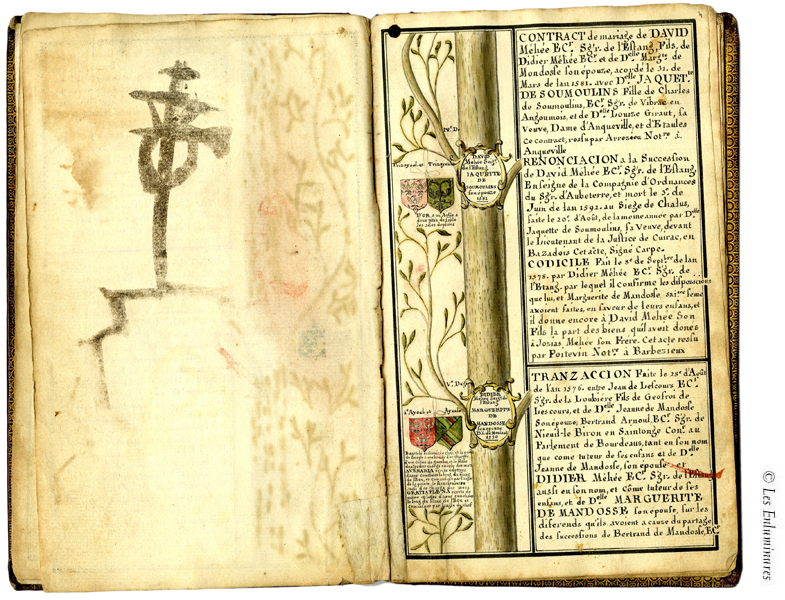 CONTRACT de mariage de DAVID
Méhée ECr. Sgr. de l'Estang, Fils, de
Didier Méhée ECr. et de Delle Margte. de
Mondosse son épouze, acordé le 31. de
Mars de lan 1581. avec Delle JAQUETe.
DE SOUMOULINS Fille de Charles
de Soumoulins, ECr. Sgr. de Vibrac en
Angoumois, et de Delle Louize Giraut, sa
Veuve, Dame d'Anqueville, et d'Etaules
ce contract, ressu par Arrezéou Notre. à
Anqueville
RENONCIACION a la Succession
de David Méhée ECr. Sgr. de l'Estang,
Enseigne de la Compagnie d'Ordnances
du Sgr. d'Aubeterre, et mort le 3e. de
Juin de lan 1592. au Siege de Chalus,
faite le 20e. d'Août, de la meme année par Delle
Jaquette de Soumoulins, sa Veuve, devant
le Lieutenant de la Justice de Cuirac, en
Bazadois Cet acte, Signé Carpe.
CODICILE Fait le 8e de Septbre. de lan
1578. par Didier Méhée ECr. Sgr. de
l'Etang, par lequel il confirme les disposicions
que lui, et Marguerite de Mandosse, sa feme
avoient faites, en faveur de leurs enfans, et
il donne encore à David Méhée Son
Fils la part des biens qu'il avoit donés
à Josias, Méhée son Frere. Cet acte ressu
par Poitevin Notre. à Barbezieux
TRANZACCION Faite le 18e d'Août
de l'an 1576. entre Jean de Lescours ECr.
Sgr. de la Loubiére Fils de Geofroi de
Lescours, et de Delle Jeanne de Mandosse
Son épouze, Bertrand Arnoul, ECr. Sgr. de
Nieuil le Biron en Saintonge Conr. au
Parlement de Bourdeaux, tant en son nom
que come tuteur de ses enfans et de Delle
Jeanne de Mandosse, son épouse
DIDIER Méhée ECr. Sgr. de l'Estang
aussi en son nom, et côme tuteur de ses
enfans, et de Delle MARGUERITE
DE MANDOSSE son épouse, sur les
diferends qu'ils avoient a cause du partage
des successions de Bertrand de Mandosse, ECr
DAVID
Méhée Seigr.
de l'Estang
JAQUETTE
DE
SOUMOULINS
son épouze
1581
Trizayeul et Trizayeule
DIDIER
Méhée
MARGUERITE
DE
MANDOSSE
son épouse
Ayeul et Ayeule
© Les Enluminures